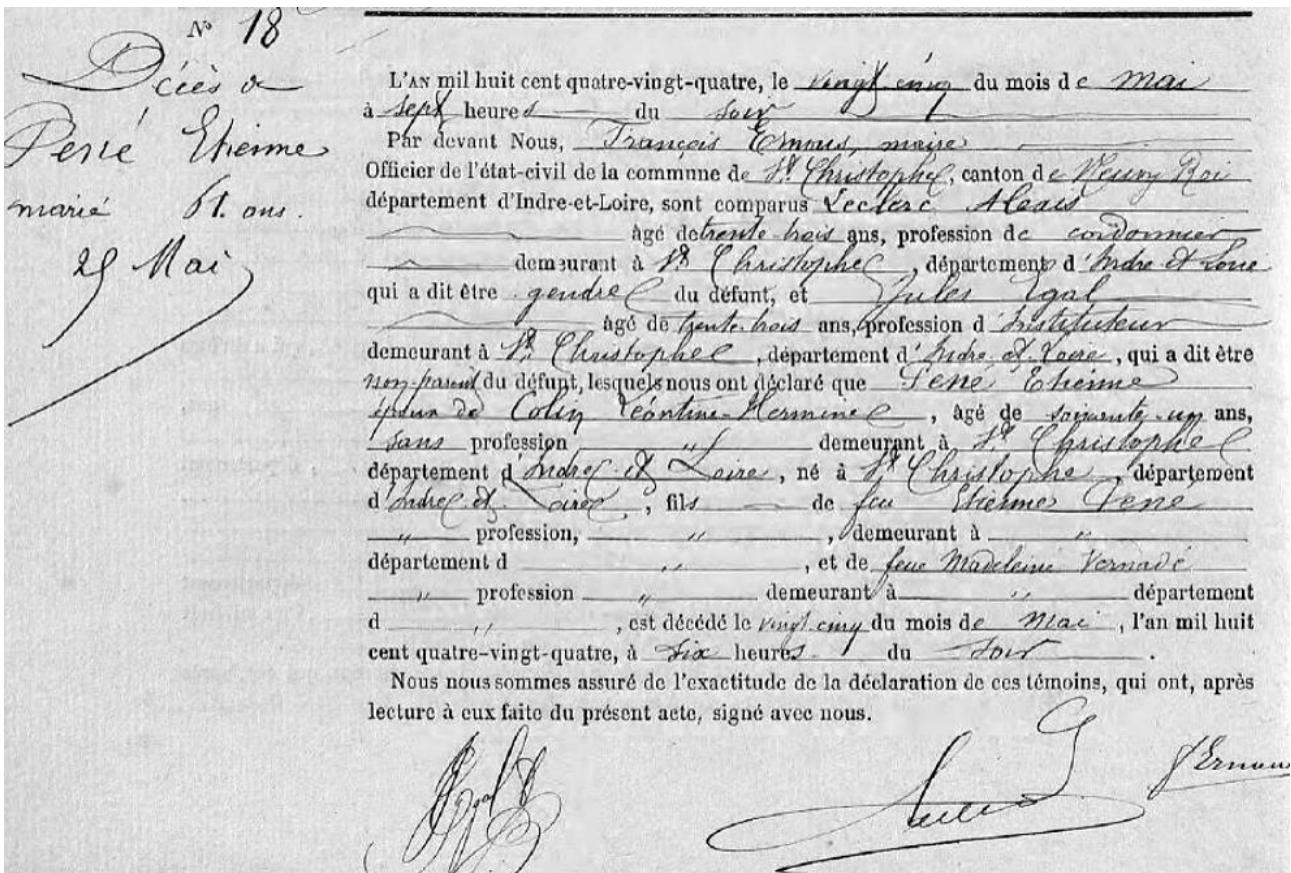 No 18
Décès de
Pené Etienne
marié 61 ans.
25 Mai
L'AN mil huit cent quatre-vingt-quatre, le vingt cinq du mois de Mai
à sept heures du soir
Par devant Nous, François maire
Officier de l'état-civil de la commune de St Christophe, canton de Neuvy Roi
département d'Indre-et-Loire, sont comparus Leclerc Alexis
âgé de trente trois ans, profession de cordonnier
demeurant à St Christophe, département d'Indre et Loire
qui a dit être gendre du défunt, et Jules Egal
âgé de trente-trois ans, profession d'instituteur
demeurant à St Christophe, département d'Indre-et-Loire, qui a dit être
non-parent du défunt, lesquels nous ont déclaré que Pené Etienne
époux de Colin Léontine-Hermine, âgé de soixante-un ans,
sans profession " demeurant à St Christophe
département d'Indre et Loire, né à St Christophe, département
d'Indre et Loire, fils de feu Etienne Pené
" profession, ", demeurant à "
département d ", et de feue Madeleine Vernadé
" profession " demeurant à " département
d ", est décédé le vingt cinq du mois de Mai, l'an mil huit
cent quatre-vingt-quatre, à six heures du soir.
Nous nous sommes assuré de l'exactitude de la déclaration de ces témoins, qui ont, après
lecture à eux faite du présent acte, signé avec nous.